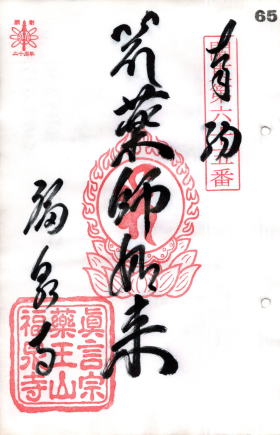 65
奉納
第六十五番
薬師如来
福泉寺
眞言宗
藥王山
福泉寺